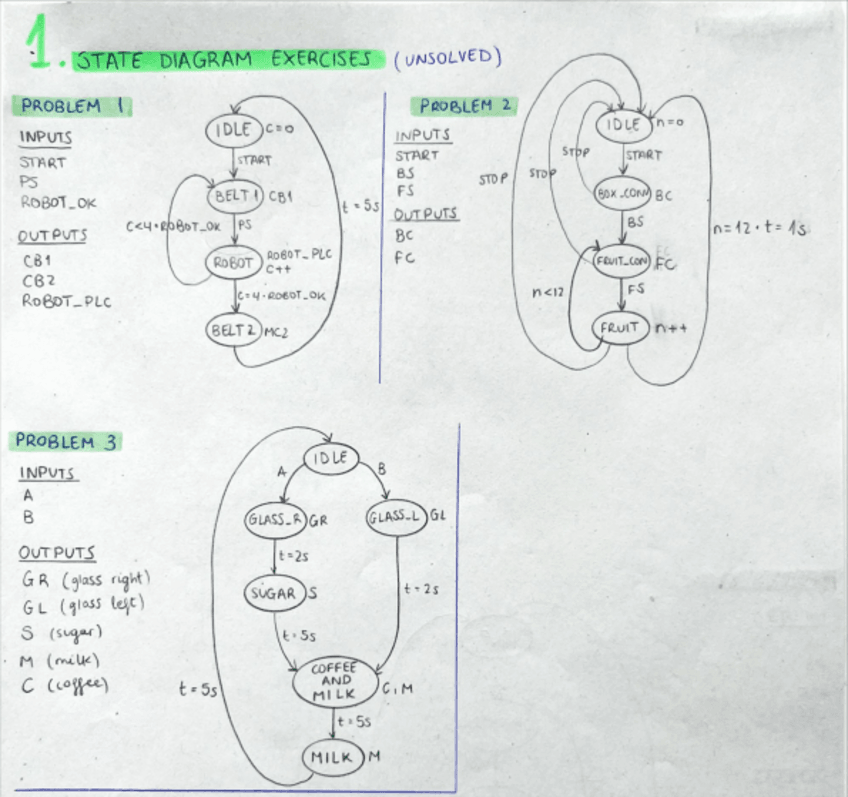 1. STATE DIAGRAM EXERCISES (UNSOLVED)
PROBLEM 1
INPUTS
START
PS
ROBOT_OK
OUTPUTS
CB1
CB2
ROBOT_PLC
IDLE C=0
START
BELT 1 CB1
C<4·ROBOT_OK
PS
ROBOT
ROBOT_PLC
C++
C=4·ROBOT_OK
BELT 2 MC2
t=5s
PROBLEM 2
INPUTS
START
BS
FS
OUTPUTS
BC
FC
IDLE n=0
START
STOP
STOP
STOP
BOX_CONV BC
BS
FRUIT_CON FC
n<12
FS
FRUIT n++
n=12·t=1s
PROBLEM 3
INPUTS
A
B
OUTPUTS
GR (glass right)
GL (glass left)
S (sugar)
M (milk)
C (coffee)
IDLE
A
B
GLASS_R GR
GLASS_L GL
t=2s
SUGAR S
t=2s
t=5s
COFFEE
AND
MILK
C, M
t=5s
t=5s
MILK M